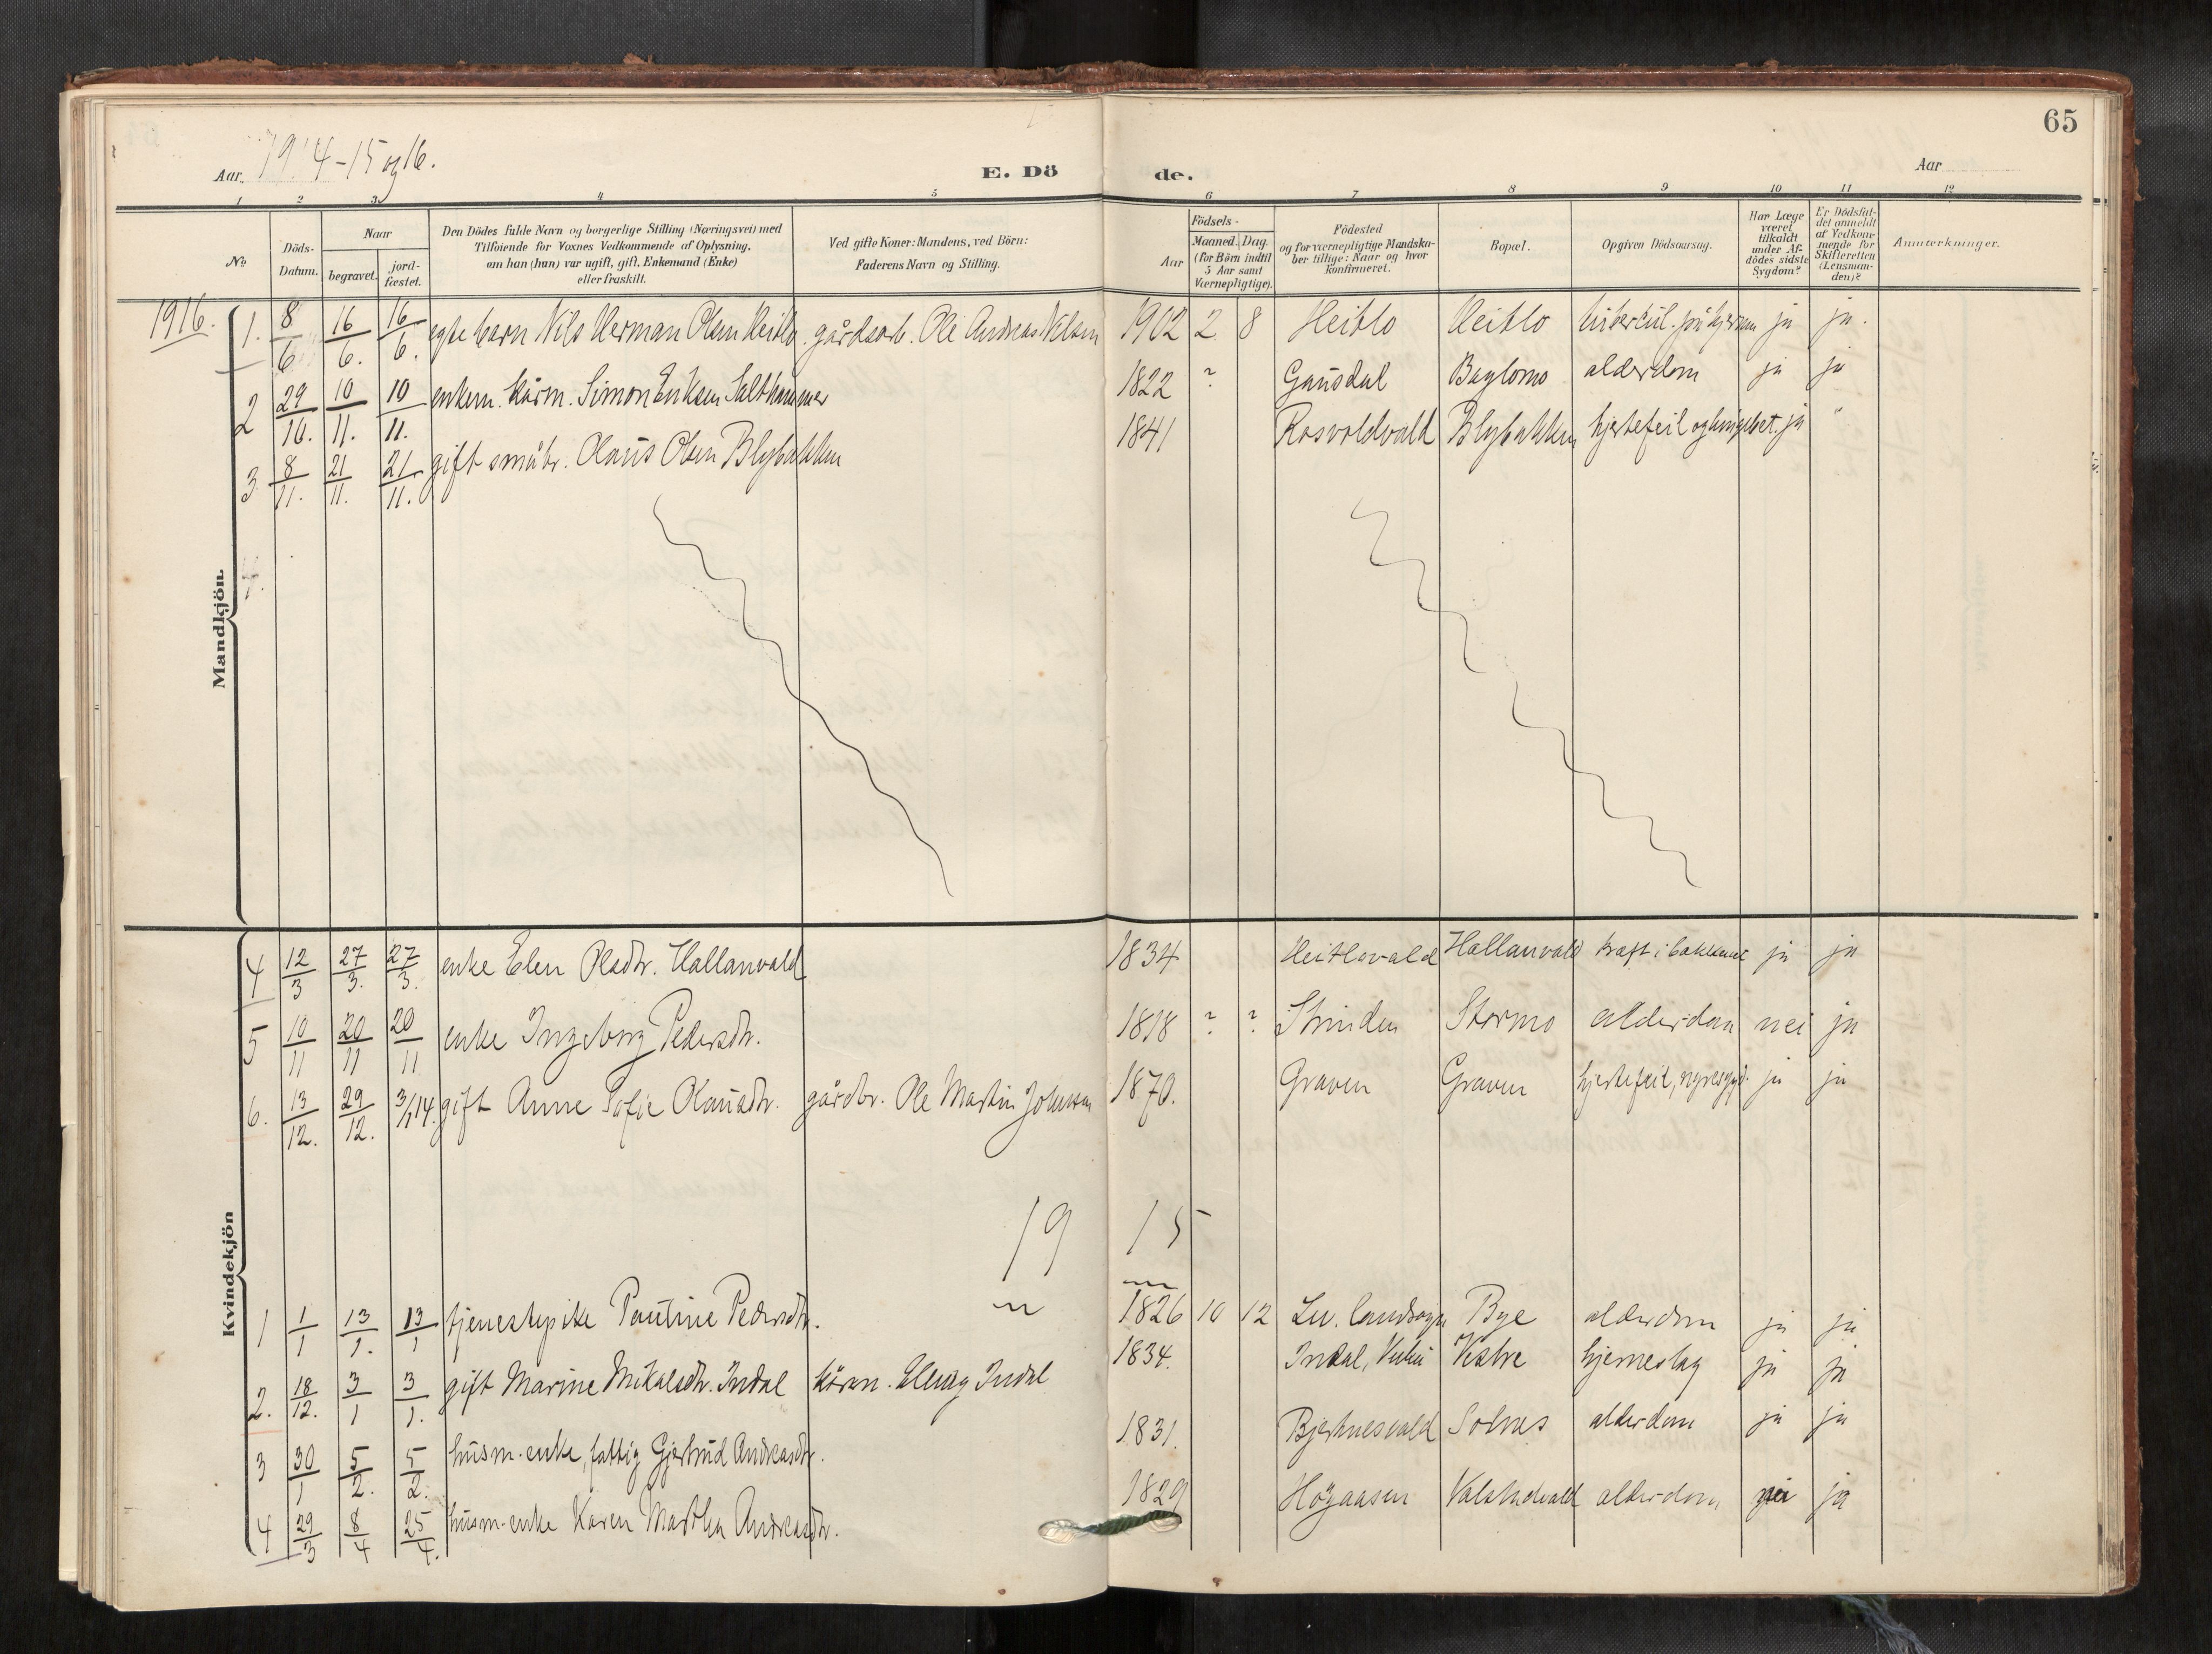 65
Aar 1914-15 og 16.
E. Dö de.
Aar
1 2 3 4 5 6 7 8 9 10 11 12
No
Döds-Datum.
Naar
begravet.
jord-fæstet.
Den Dödes fulde Navn og borgerlige Stilling (Næringsvei) med
Tilföiende for Voxnes Vedkommende af Oplysning,
om han (hun) var ugift, gift, Enkemand (Enke)
eller fraskilt.
Ved gifte Koner: Mandens, ved Börn:
Faderens Navn og Stilling.
Födsels-
Aar
Maaned. Dag.
(for Börn indtil
5 Aar samt
Værnepligtige).
Födested
og for værnepligtige Mandska-
ber tillige: Naar og hvor
konfirmeret.
Bopæl.
Opgiven Dödsaarsag.
Har Læge
været
tilkaldt
under Af-
dödes sidste
Sygdom?
Er Dödsfal-
det anmeldt
af Vedkom-
mende for
Skifteretten
(Lensman-
den)?
Anmærkninger.
1916.
Mandkjön.
1. 8/6 16/6. 16/6. egte barn Nils Herman Olsen Heitlo. gårdsarb. Ole Andreas Nilsen 1902 2 8 Heitlo Heitlo tuberkul. på hjernen ja ja.
2 29/10. 10/11. 10/11. enkem. kårm. Simon Eriksen Salthammer 1822 ? Gausdal Baglomo alderdom ja ja
3 8/11. 21/11. 21/11. gift småbr. Olaus Olsen Blybakken 1841 Rosvoldvald Blybakken hjertefeil og lungebet. ja "
Kvindekjön
4 12/3 27/3. 27/3. enke Elen Olsdtr. Hallanvald 1834 Heitlovald Hallanvald kræft i ja ja
5 10/11 20/11 20/11 enke Ingeborg Pedersdtr. 1818 ? ? Strinden Stormo alderdom nei ja
6. 13/12. 29/12. 3/1 14. gift Anne Sofie Olausdtr. gårdbr. Ole Martin Johnsen 1870. Graven Graven hjertefeil, nyresygd. ja ja
19 15
1 1/1 13/1. 13/1 tjenestepike Pauline Pedersdtr. 1826 10 12 Lev. landsogn Bye alderdom ja ja
2. 18/12. 3/1 3/1. gift Marine Mikalsdtr. Indal kårm. Elling Indal 1834. Indal, Vuku Vestre hjerneslag ja ja
3 30/1 5/2. 5/2. husm.enke, fattig Gjertrud Andreasdtr. 1831. Bjertnesvald Solnes alderdom ja ja
4 29/3 8/4 25/4. husm.enke Karen Martha Andreasdtr. 1829 Högaasen Valstadvald alderdom nei ja